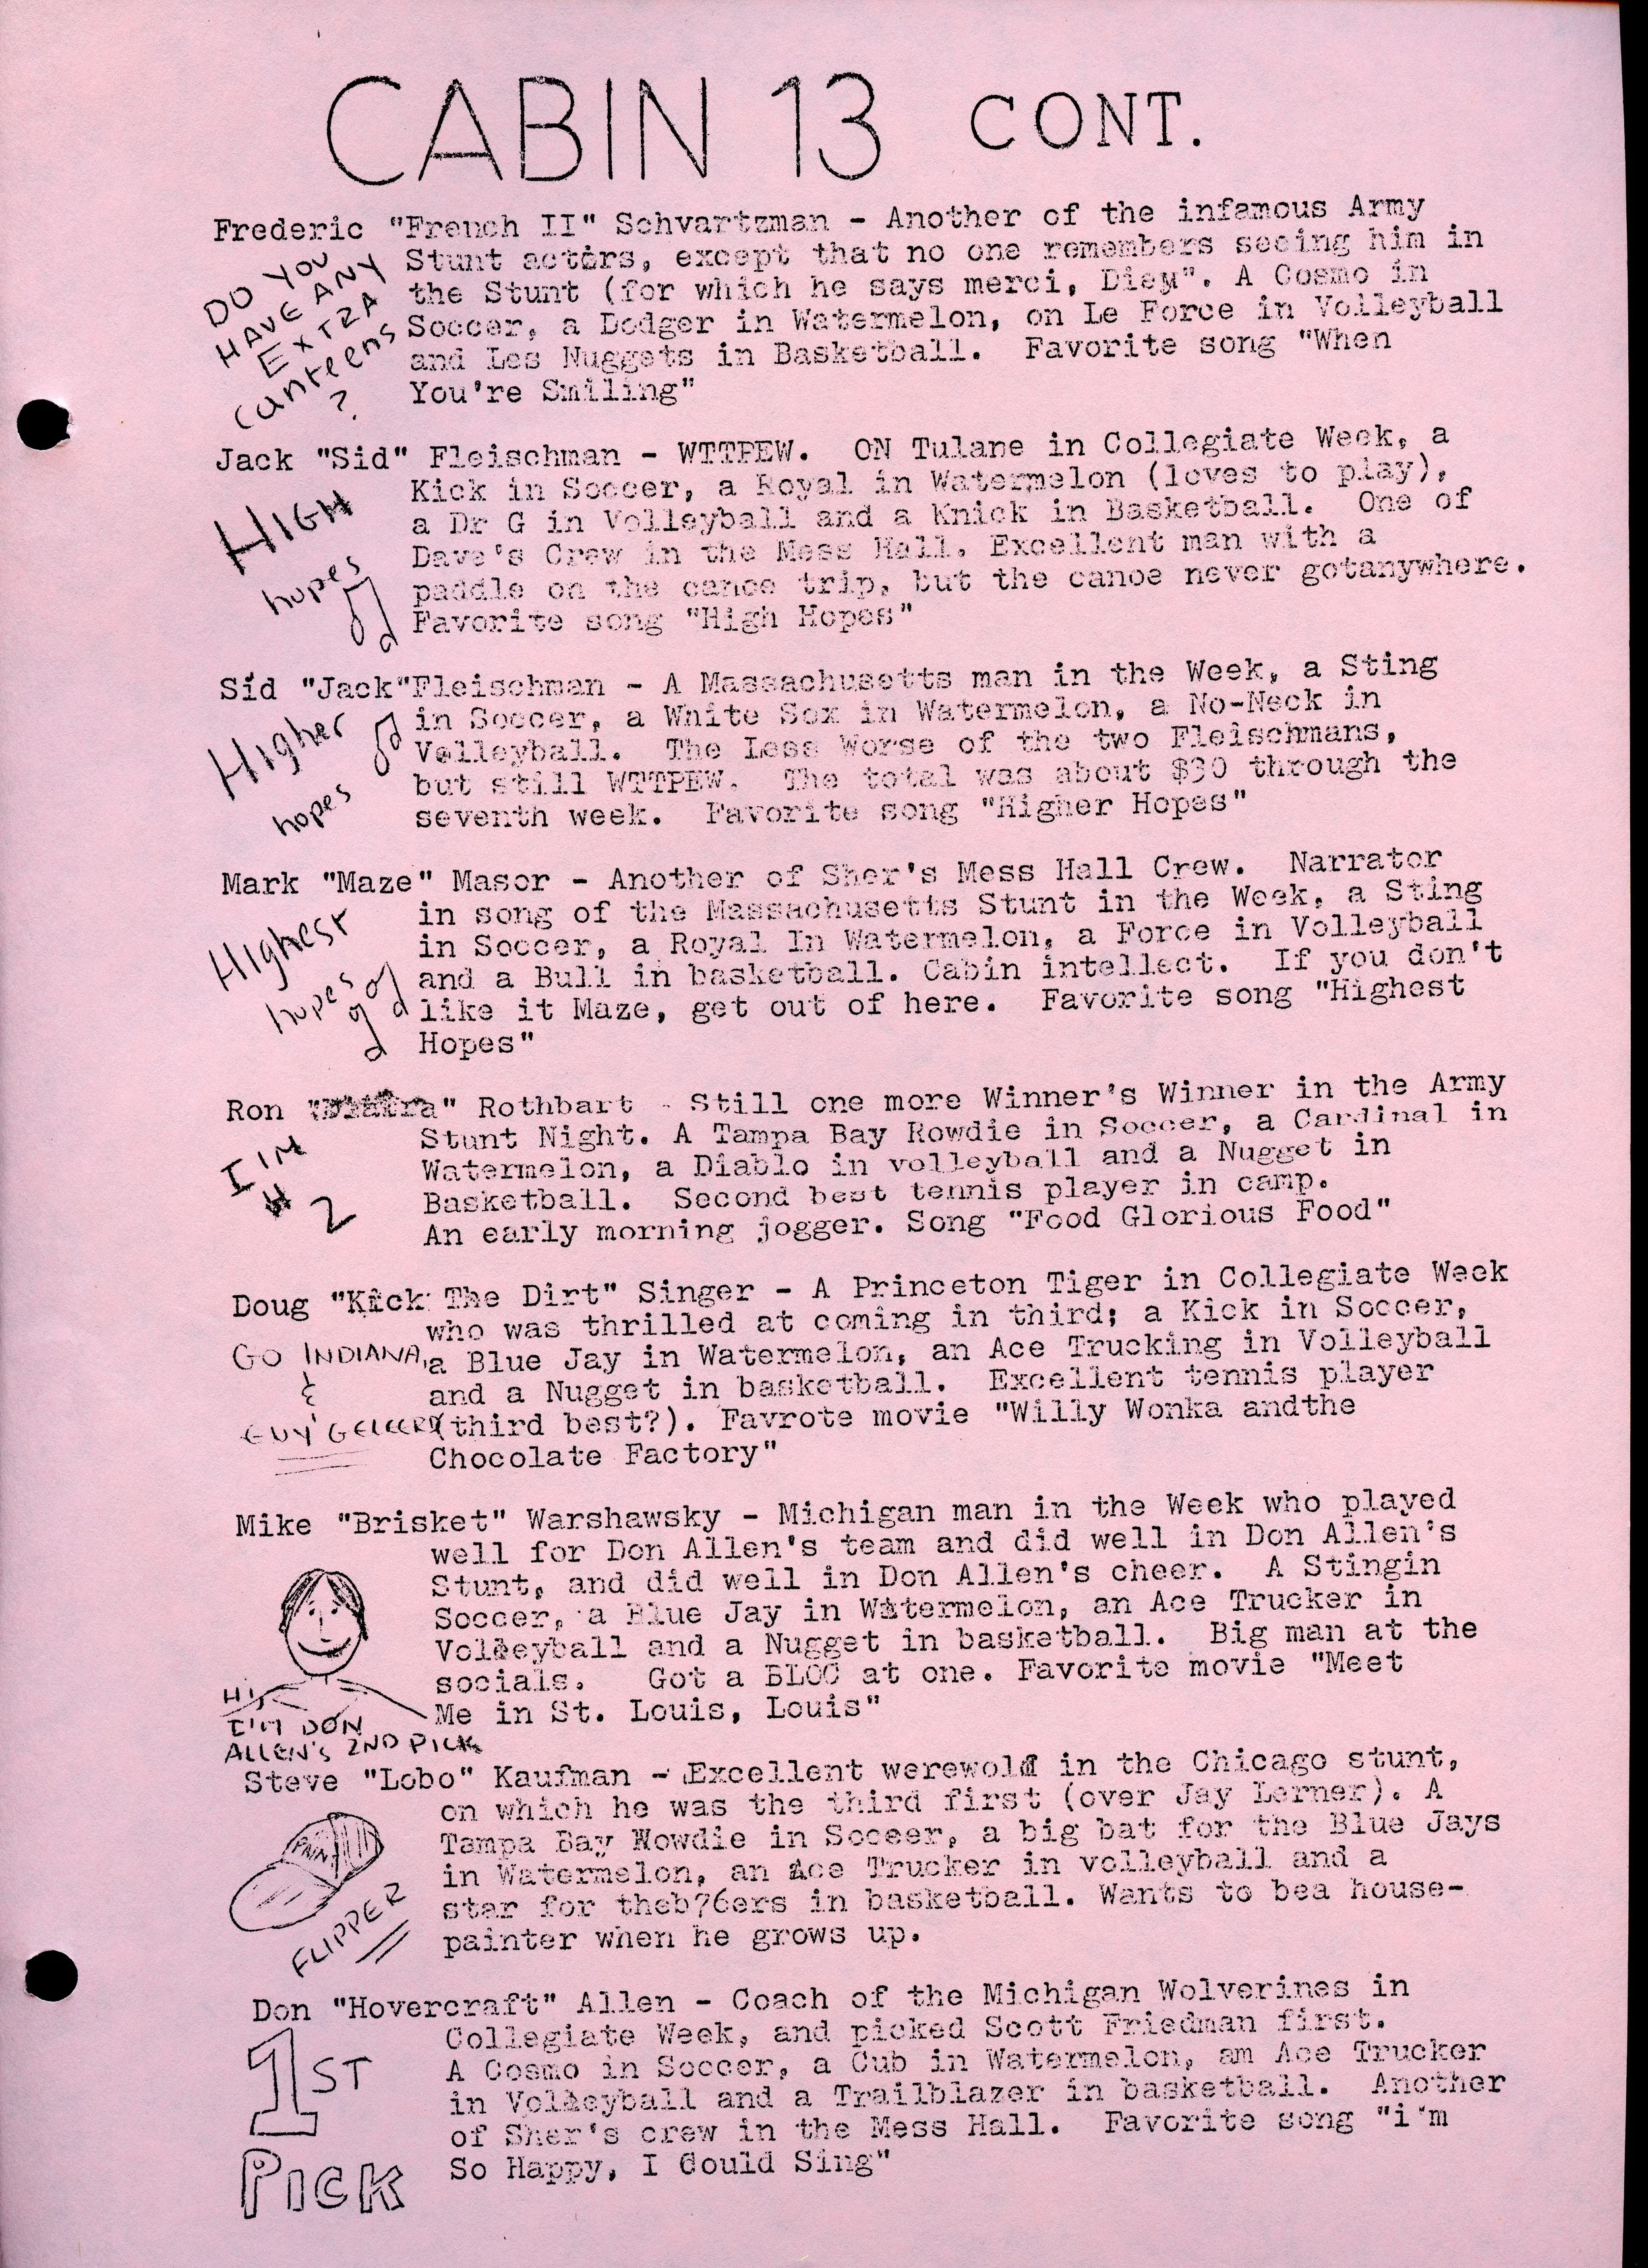 CABIN 13 CONT.
Frederic "French II" Schvartzman - Another of the infamous Army
Stunt actors, except that no one remembers seeing him in
the Stunt (for which he says merci, Dieu". A Cosmo in
Soccer, a Dodger in Watermelon, on Le Force in Volleyball
and Les Nuggets in Basketball. Favorite song "When
You're Smiling"
DO YOU
HAVE ANY
EXTRA
canteens
?
Jack "Sid" Fleischman - WTTPEW. ON Tulane in Collegiate Week, a
Kick in Soccer, a Royal in Watermelon (loves to play),
a Dr G in Volleyball and a Knick in Basketball. One of
Dave's Crew in the Mess Hall. Excellent man with a
paddle on the canoe trip, but the canoe never gotanywhere.
Favorite song "High Hopes"
HIGH
hopes
Sid "Jack"Fleischman - A Massachusetts man in the Week, a Sting
in Soccer, a White Sox in Watermelon, a No-Neck in
Volleyball. The Less Worse of the two Fleischmans,
but still WTTPEW. The total was about $30 through the
seventh week. Favorite song "Higher Hopes"
Higher
hopes
Mark "Maze" Masor - Another of Sher's Mess Hall Crew. Narrator
in song of the Massachusetts Stunt in the Week, a Sting
in Soccer, a Royal In Watermelon, a Force in Volleyball
and a Bull in basketball. Cabin intellect. If you don't
like it Maze, get out of here. Favorite song "Highest
Hopes"
Highest
hopes
Ron Rothbart - Still one more Winner's Winner in the Army
Stunt Night. A Tampa Bay Rowdie in Soccer, a Cardinal in
Watermelon, a Diablo in volleyball and a Nugget in
Basketball. Second best tennis player in camp.
An early morning jogger. Song "Food Glorious Food"
I'M
# 2
Doug "Kick The Dirt" Singer - A Princeton Tiger in Collegiate Week
who was thrilled at coming in third; a Kick in Soccer,
a Blue Jay in Watermelon, an Ace Trucking in Volleyball
and a Nugget in basketball. Excellent tennis player
(third best?). Favrote movie "Willy Wonka andthe
Chocolate Factory"
GO INDIANA,
&
Mike "Brisket" Warshawsky - Michigan man in the Week who played
well for Don Allen's team and did well in Don Allen's
Stunt, and did well in Don Allen's cheer. A Stingin
Soccer, a Blue Jay in Watermelon, an Ace Trucker in
Volleyball and a Nugget in basketball. Big man at the
socials. Got a at one. Favorite movie "Meet
Me in St. Louis, Louis"
HI,
I'M DON
ALLEN'S 2ND PICK
Steve "Lobo" Kaufman - Excellent werewolf in the Chicago stunt,
on which he was the third first (over Jay Lerner). A
Tampa Bay Rowdie in Soccer, a big bat for the Blue Jays
in Watermelon, an Ace Trucker in volleyball and a
star for theb76ers in basketball. Wants to bea house-
painter when he grows up.
PAINT
FLIPPER
Don "Hovercraft" Allen - Coach of the Michigan Wolverines in
Collegiate Week, and picked Scott Friedman first.
A Cosmo in Soccer, a Cub in Watermelon, am Ace Trucker
in Volleyball and a Trailblazer in basketball. Another
of Sher's crew in the Mess Hall. Favorite song "i'm
So Happy, I Could Sing"
1ST
PICK